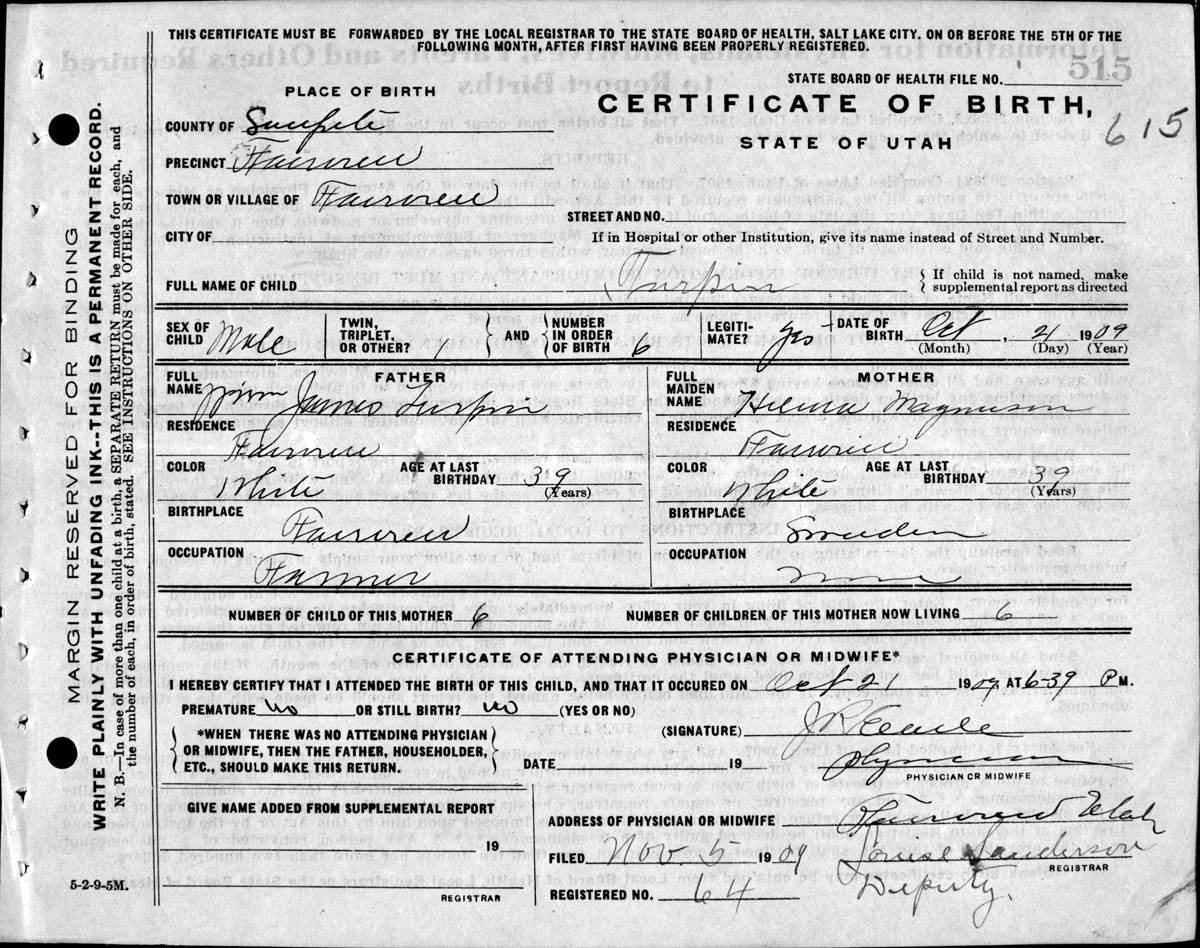 THIS CERTIFICATE MUST BE FORWARDED BY THE LOCAL REGISTRAR TO THE STATE BOARD OF HEALTH, SALT LAKE CITY. ON OR BEFORE THE 5TH OF THE
FOLLOWING MONTH, AFTER FIRST HAVING BEEN PROPERLY REGISTERED.
515
STATE BOARD OF HEALTH FILE NO.
PLACE OF BIRTH
CERTIFICATE OF BIRTH,
STATE OF UTAH
615
COUNTY OF Sanpete
PRECINCT Fairview
TOWN OR VILLAGE OF Fairview
STREET AND NO.
CITY OF
If in Hospital or other Institution, give its name instead of Street and Number.
FULL NAME OF CHILD Turpin
{ If child is not named, make
supplemental report as directed
SEX OF CHILD Male TWIN, TRIPLET, OR OTHER? } AND { NUMBER IN ORDER OF BIRTH 6 LEGITI- MATE? yes DATE OF BIRTH Oct, 21 1909
(Month) (Day) (Year)
FATHER
FULL NAME James Turpin
RESIDENCE
Fairview
COLOR White AGE AT LAST BIRTHDAY 39
(Years)
BIRTHPLACE
Fairview
OCCUPATION
Farmer
MOTHER
FULL MAIDEN NAME Hilma Magnuson
RESIDENCE
Fairview
COLOR White AGE AT LAST BIRTHDAY 39
(Years)
BIRTHPLACE
Sweden
OCCUPATION
None
NUMBER OF CHILD OF THIS MOTHER 6 NUMBER OF CHILDREN OF THIS MOTHER NOW LIVING 6
CERTIFICATE OF ATTENDING PHYSICIAN OR MIDWIFE*
I HEREBY CERTIFY THAT I ATTENDED THE BIRTH OF THIS CHILD, AND THAT IT OCCURED ON Oct 21 1909 AT 6-39 P M.
PREMATURE No OR STILL BIRTH? No (YES OR NO)
(SIGNATURE)
{ *WHEN THERE WAS NO ATTENDING PHYSICIAN
OR MIDWIFE, THEN THE FATHER, HOUSEHOLDER,
ETC., SHOULD MAKE THIS RETURN. }
DATE 19 Physician
PHYSICIAN OR MIDWIFE
GIVE NAME ADDED FROM SUPPLEMENTAL REPORT
19
REGISTRAR
ADDRESS OF PHYSICIAN OR MIDWIFE Fairview Utah
FILED Nov 5 1909 Louise Sanderson
REGISTRAR
REGISTERED NO. 64 Deputy.
5-2-9-5M.
MARGIN RESERVED FOR BINDING
WRITE PLAINLY WITH UNFADING INK--THIS IS A PERMANENT RECORD.
N. B.—In case of more than one child at a birth, a SEPARATE RETURN must be made for each, and
the number of each, in order of birth, stated. SEE INSTRUCTIONS ON OTHER SIDE.